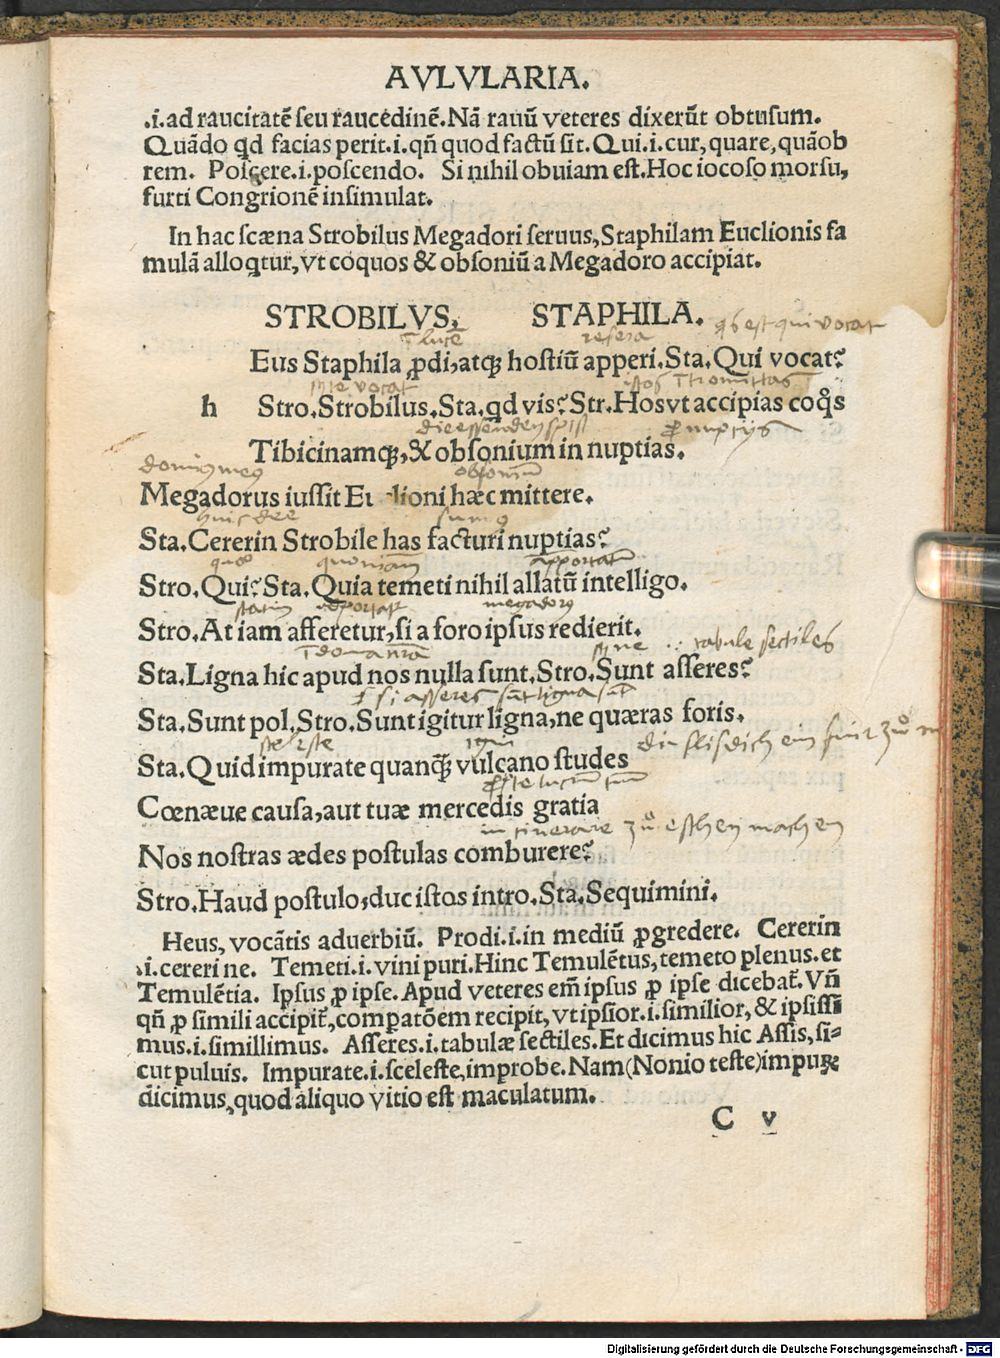 AVLVLARIA.
.i.ad raucitatē seu raucedinē.Nā rauū veteres dixerūt obtusum.
Quādo qd facias perit.i.qñ quod factū sit. Qui.i.cur, quare, quāob
rem. Poscere.i.poscendo. Si nihil obuiam est.Hoc iocoso morsu,
furti Congrionē insimulat.
In hac scæna Strobilus Megadori seruus, Staphilam Euclionis fa
mulā alloqtur, vt coquos & obsoniū a Megadoro accipiat.
STROBILVS, STAPHILA.
qs est qui vocat
ī lucē resera
Eus Staphila ꝓdi, atqꝫ hostiū apperi. Sta. Qui vocat?
vocat istos
h Stro. Strobilus. Sta. qd vis? Str. Hos vt accipias coqs
ꝓ nuptijs
Tibicinamqꝫ, & obsonium in nuptias.
dominꝰ meꝰ obsoniū
Megadorus iussit Eu lioni hæc mittere.
huic dee sumꝰ
Sta. Cererin Strobile has facturi nuptias?
quō quoniam apportatū
Stro. Qui? Sta. Quia temeti nihil allatū intelligo.
statim apportat megadorꝰ
Stro. At iam afferetur, si a foro ipsus redierit.
ī domo nr̄a tabule sectiles
Sta. Ligna hic apud nos nulla sunt. Stro. Sunt asseres?
si asseres sūt ligna sūt
Sta. Sunt pol. Stro. Sunt igitur ligna, ne quæras foris.
igni
Sta. Quid impurate quanqꝫ vulcano studes
Cœnæue causa, aut tuæ mercedis gratia
incinerare zuͦ eschen machen
Nos nostras ædes postulas comburere?
Stro. Haud postulo, duc istos intro. Sta. Sequimini.
Heus, vocātis aduerbiū. Prodi.i.in mediū ꝓgredere. Cererin
.i.cereri ne. Temeti.i.vini puri. Hinc Temulētus, temeto plenus. et
Temulētia. Ipsus ꝓ ipse. Apud veteres em̄ ipsus ꝓ ipse dicebat̄. Vñ
qñ ꝓ simili accipit̄, compatōem recipit, vt ipsior.i.similior, & ipsissi
mus.i.simillimus. Asseres.i.tabulæ sectiles. Et dicimus hic Assis, si-
cut puluis. Impurate.i.sceleste, improbe. Nam (Nonio teste) impuꝝ
dicimus, quod aliquo vitio est maculatum.
C v
Digitalisierung gefördert durch die Deutsche Forschungsgemeinschaft - DFG